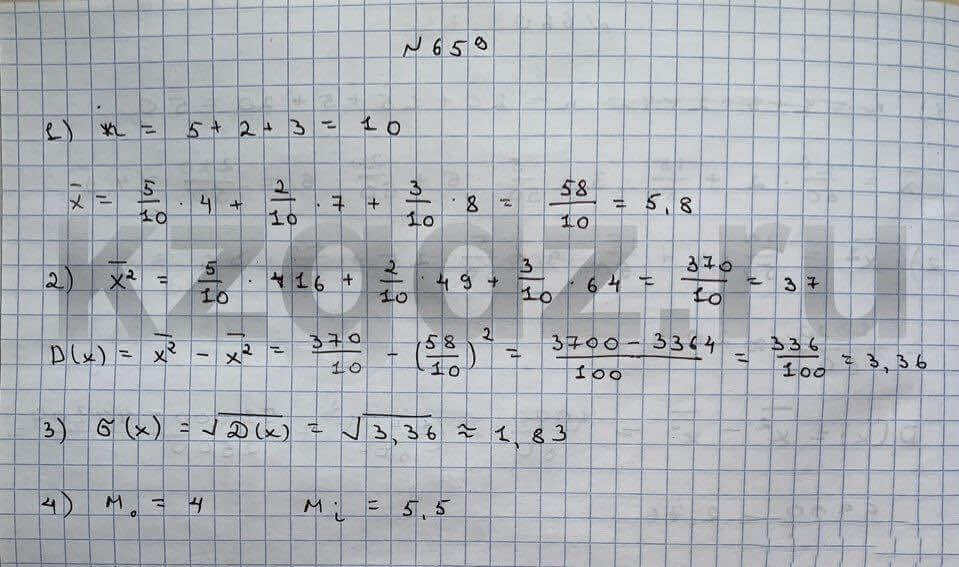 N 659
1) n = 5 + 2 + 3 = 10
x̄ = 5/10 · 4 + 2/10 · 7 + 3/10 · 8 = 58/10 = 5,8
2) x̄² = 5/10 · 16 + 2/10 · 49 + 3/10 · 64 = 370/10 = 37
D(x) = x̄² - x̄² = 370/10 - (58/10)² = (3700 - 3364)/100 = 336/100 = 3,36
3) σ(x) = √D(x) = √3,36 ≈ 1,83
4) M₀ = 4 Mi = 5,5
kzgdz.ru